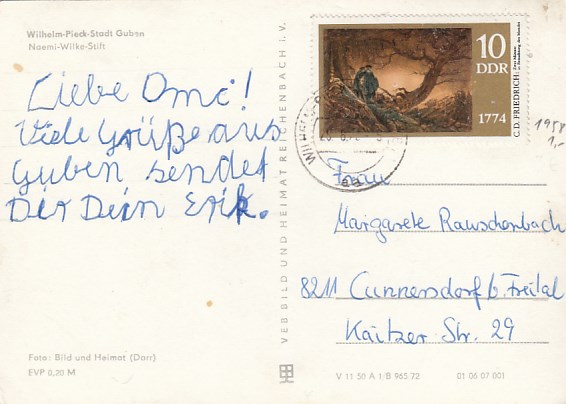 Wilhelm-Pieck-Stadt Guben
Naemi-Wilke-Stift
Liebe Omi!
Viele Grüße aus
Guben sendet
Dir Dein Erik.
Foto: Bild und Heimat (Darr)
EVP 0,20 M
VEB BILD UND HEIMAT REICHENBACH i. V.
10
DDR
1774
C. D. FRIEDRICH:
1958
1,-
Frau
Margarete Rauschenbach
8211 Cunnersdorf b. Freital
Kaitzer Str. 29
V 11 50 A 1/B 965/72
01 06 07 001